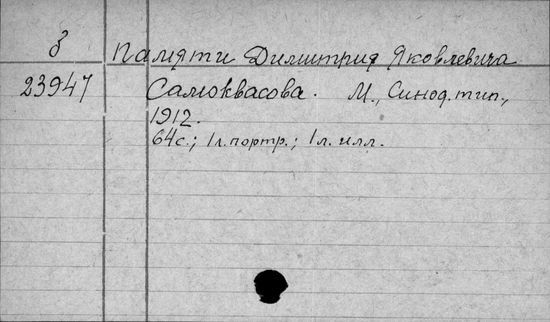 б
Памяти Димитрия Яковлевича
23947
Самоквасова. М., Синод. тип.,
1912.
64 с.; 1 л. портр.; 1 л. илл.